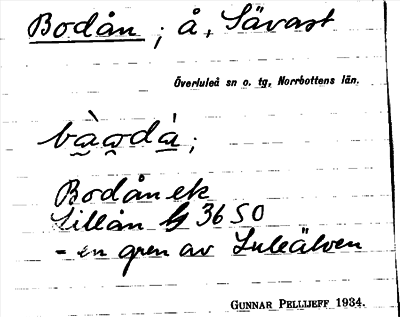 Bodån ; å, Sävast
Överluleå sn o. tg, Norrbottens län.
bà̰o̯dà̱ ;
Bodån ek
Lillån G 36 SO
- en gren av Luleälven
GUNNAR PELLIJEFF 1934.